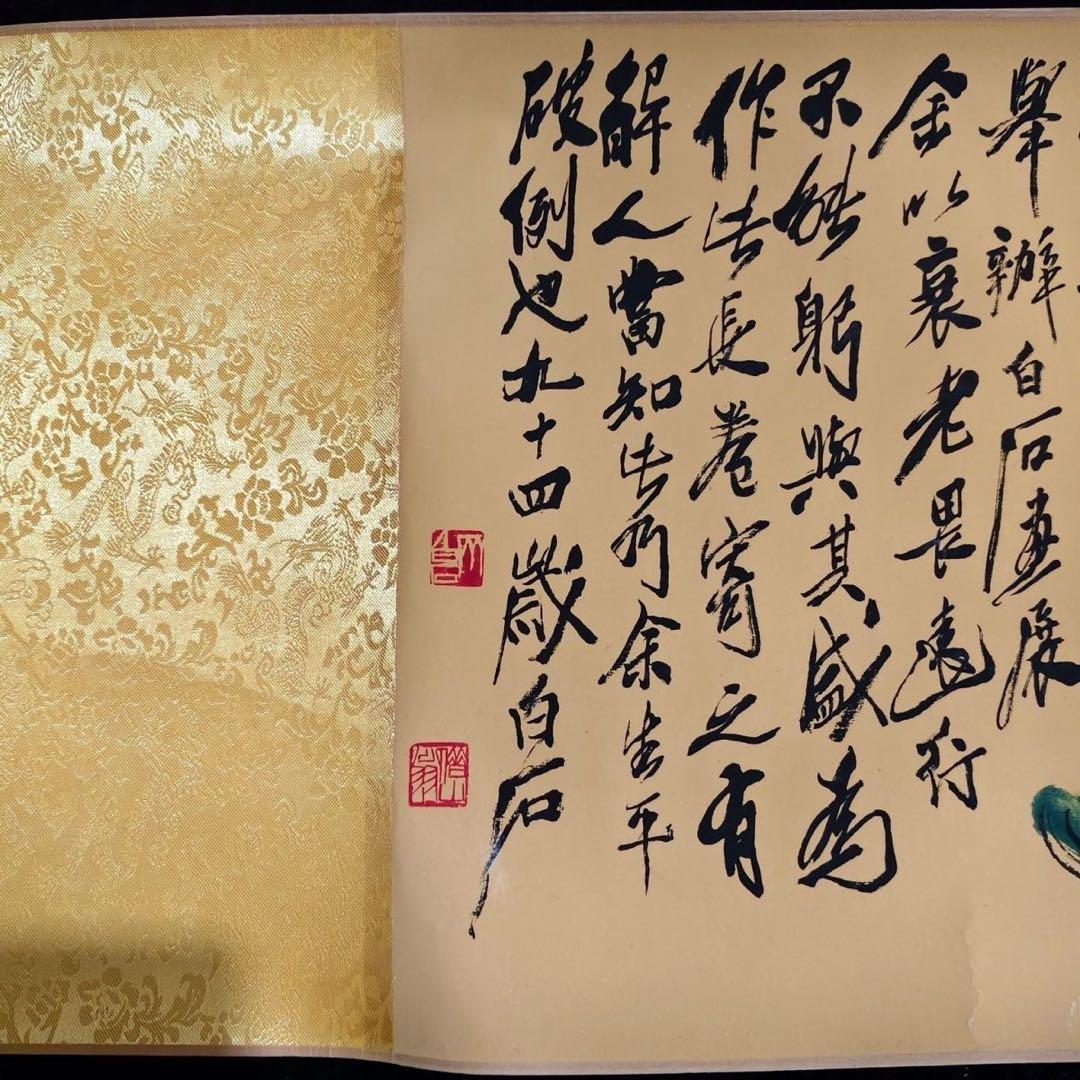 舉辦白石畫展
以衰老畏遠行
不能躬與其盛為
作此長卷寄之有
解人當知此余生平
破例也九十四歲白石
借山翁